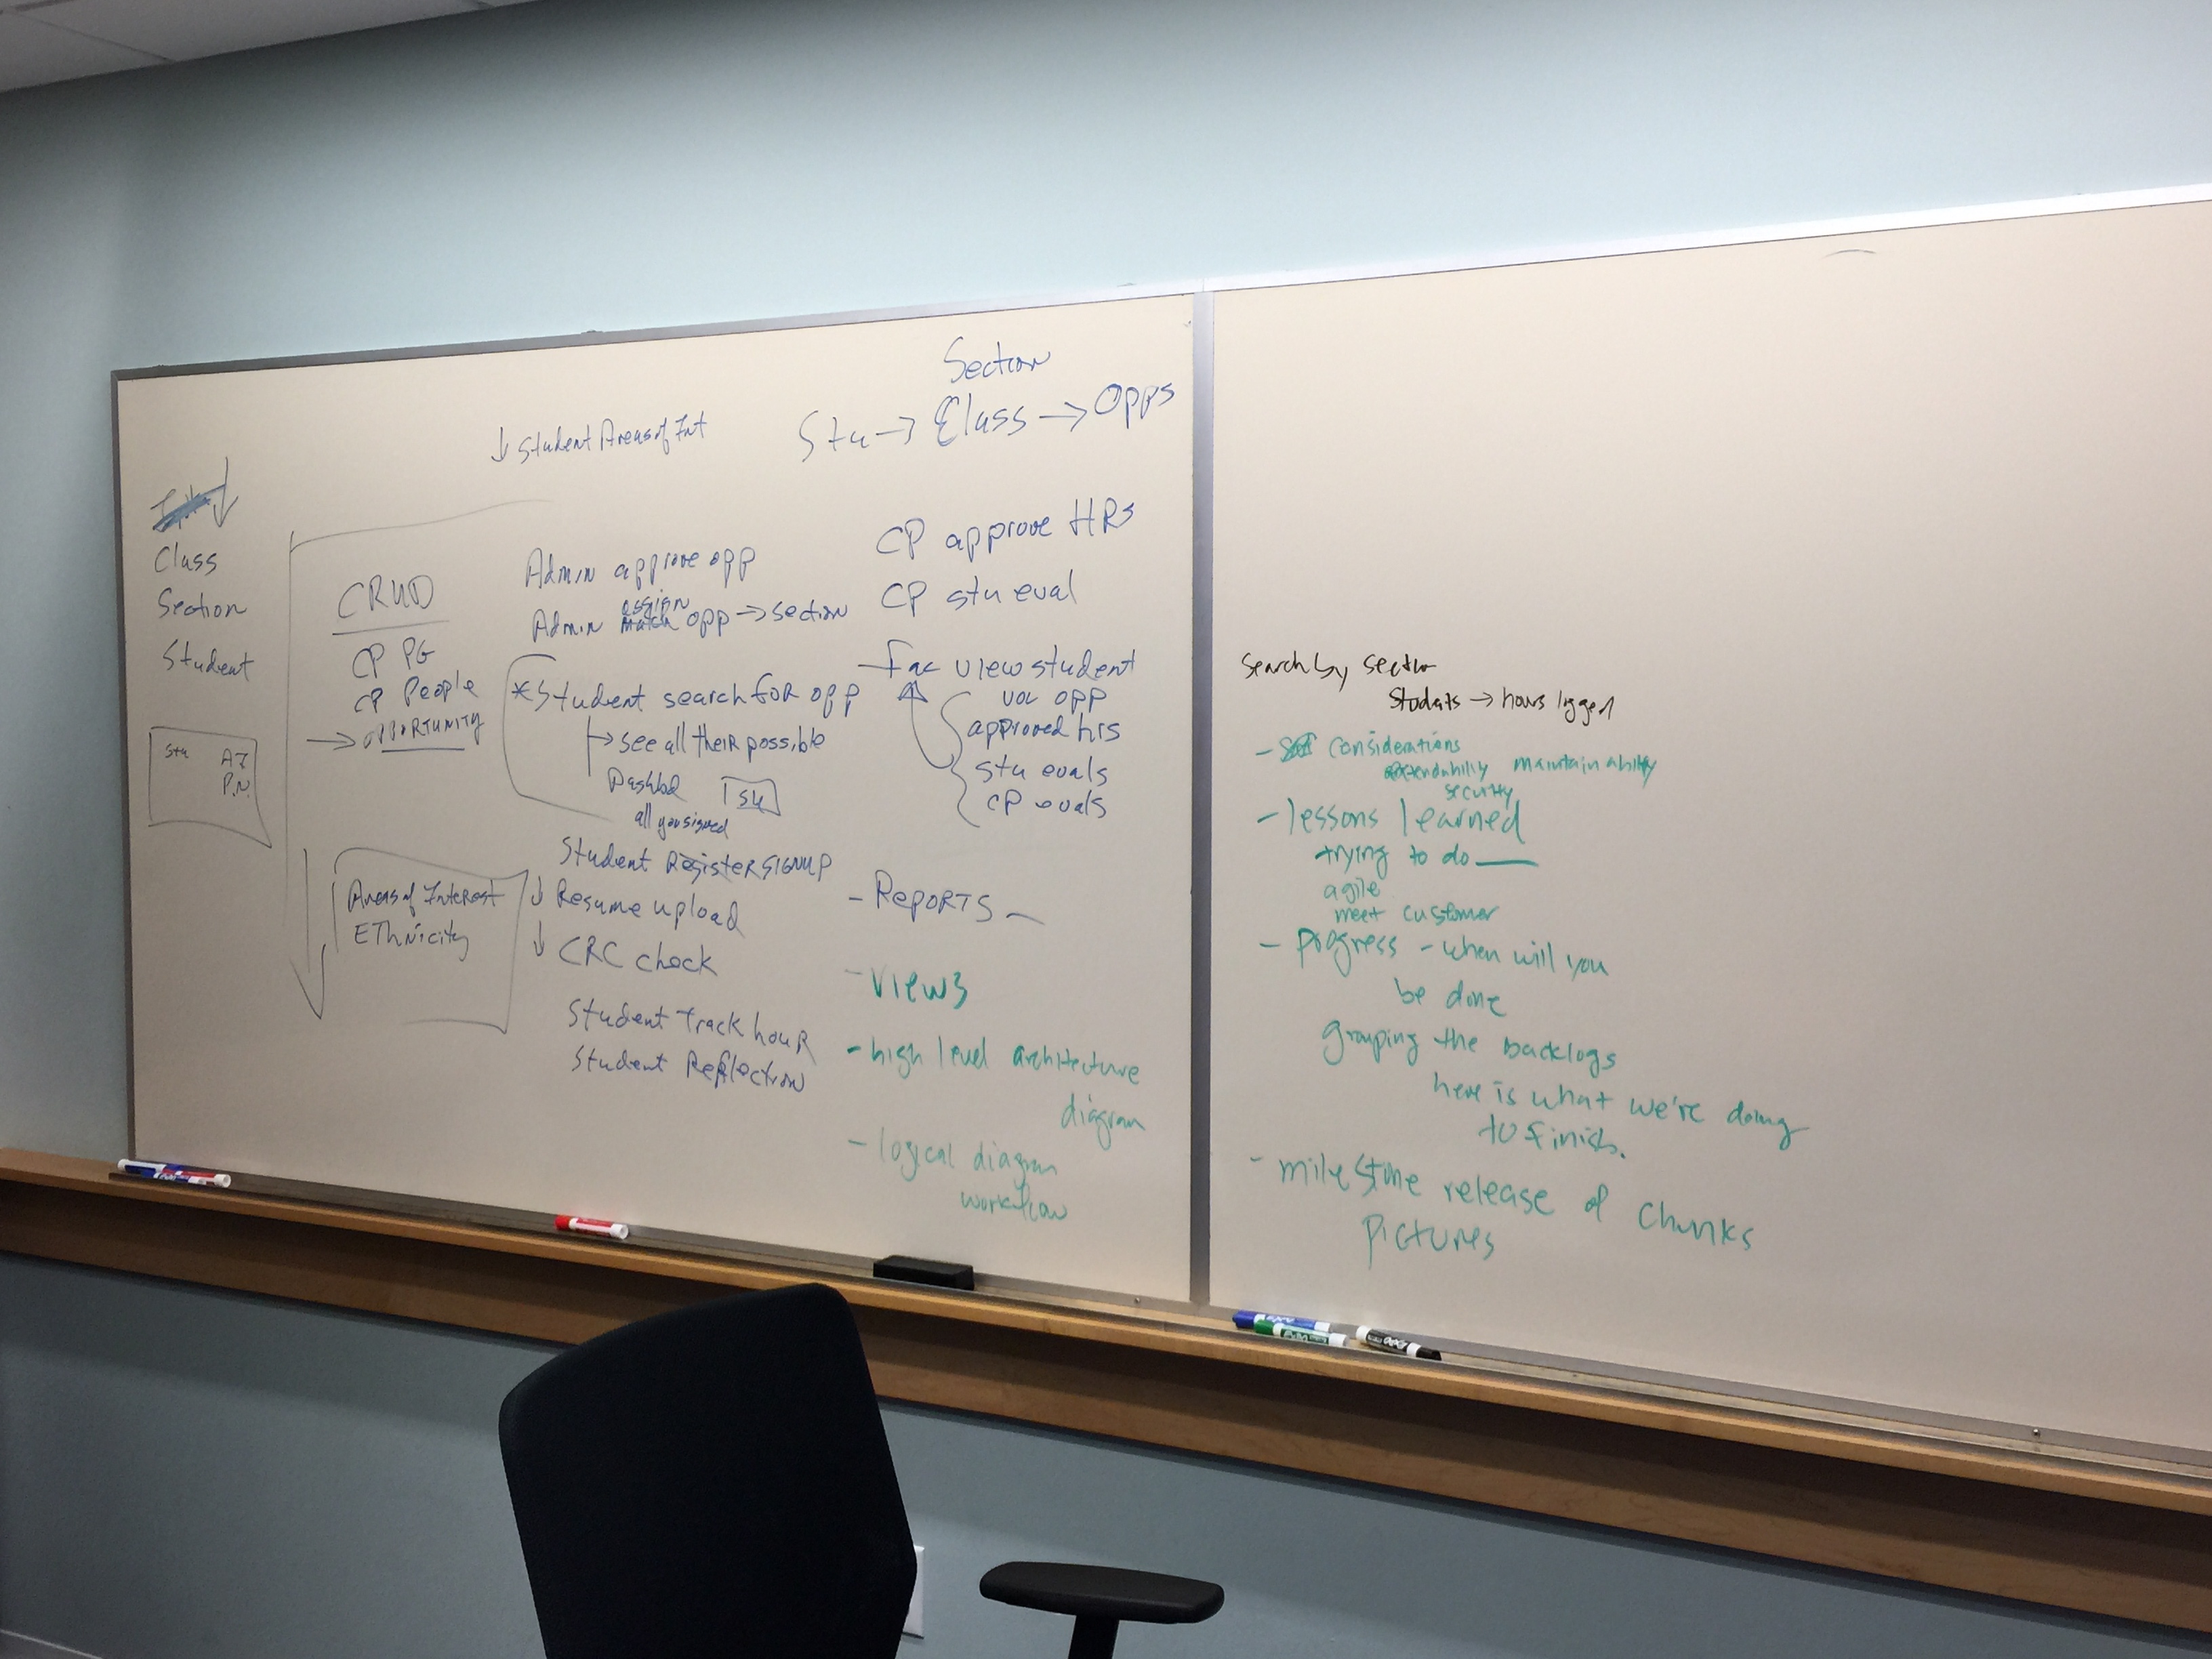 Section
Stu → Class → Opps
↓ Student Areas of Int
Class
Section
Student
Stu AI
P.N.
CRUD
CP PG
CP People
→ OPPORTUNITY
Areas of Interest
Ethnicity
Admin approve opp
assign
Admin match opp → section
*Student search for opp
→ see all their possible
Dashbd
all you signed
Student Register SIGNUP
↓ Resume upload
↓ CRC check
Student Track hour
Student Reflection
CP approve HRs
CP stu eval
- Fac view student
vol opp
approved hrs
stu evals
CP evals
- REPORTS
- Views
- high level architecture
diagram
- logical diagram
workflow
Search by section
Students → hours logged
- considerations
extendability maintainability
security
- lessons learned
trying to do ___
agile
meet customer
- progress - when will you
be done
grouping the backlogs
here is what we're doing
to finish.
- milestone release of chunks
pictures